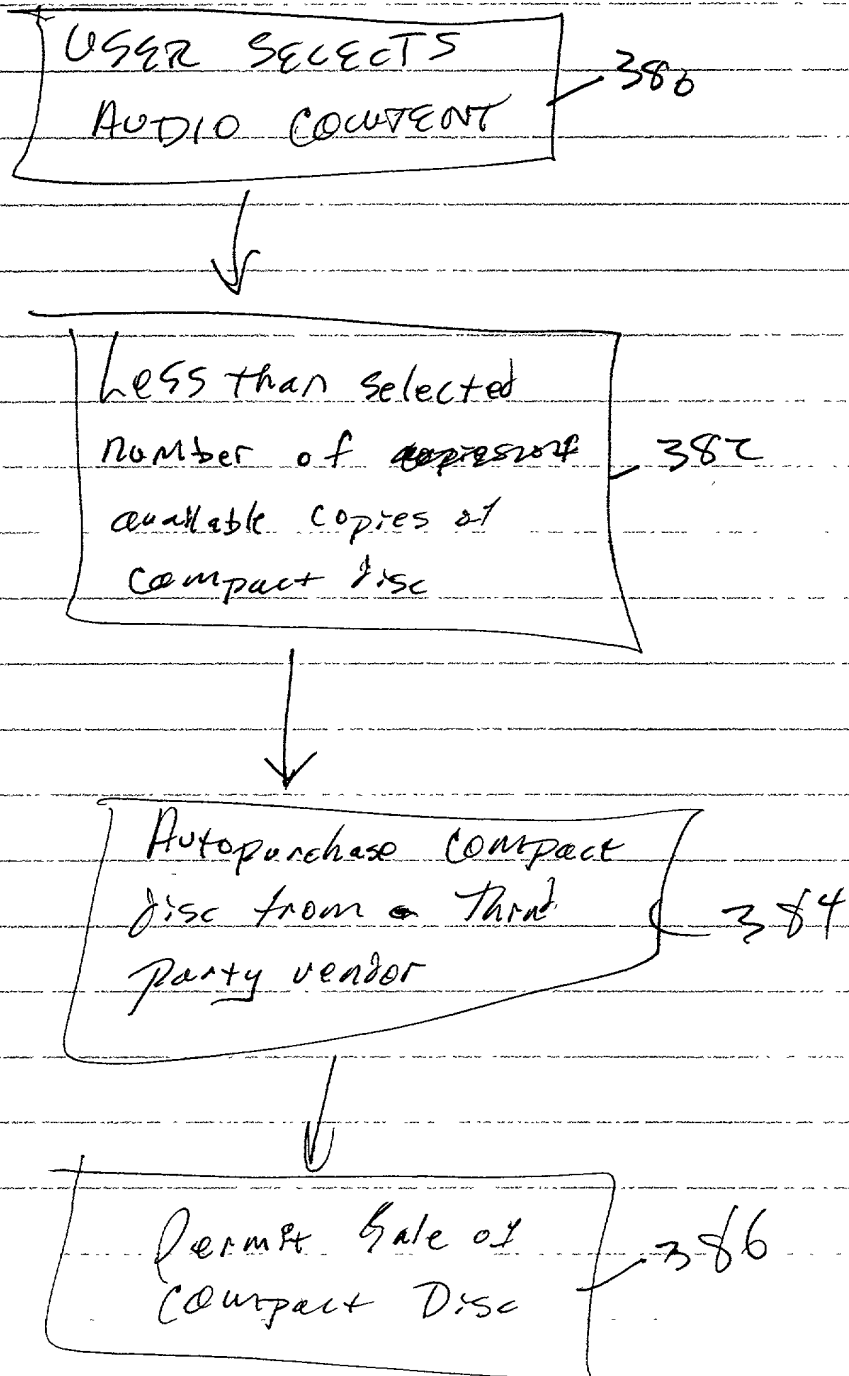 USER SELECTS
AUDIO CONTENT
380
Less than selected
number of
available copies of
compact disc
382
Autopurchase compact
disc from a Third
party vendor
384
Permit Sale of
Compact Disc
386